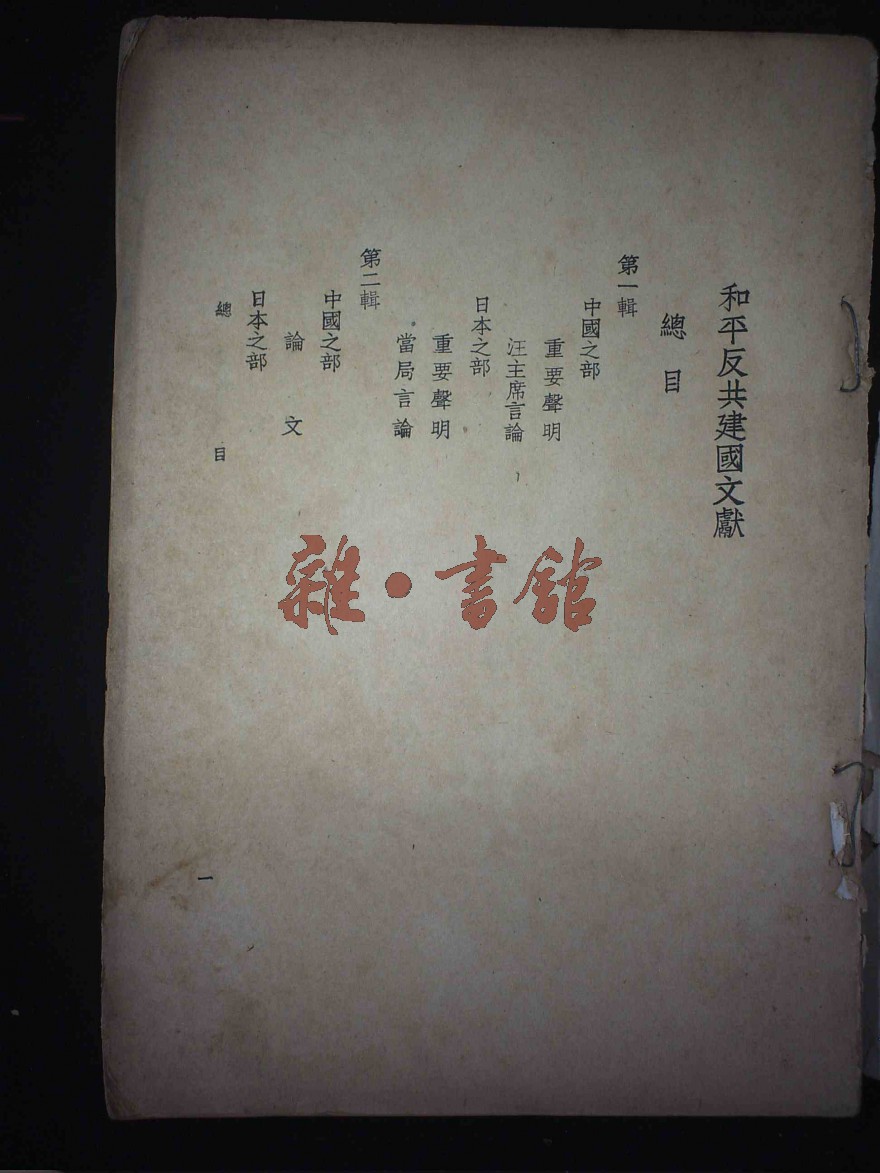 和平反共建國文獻
總目
第一輯
中國之部
重要聲明
汪主席言論
日本之部
重要聲明
當局言論
第二輯
中國之部
論文
日本之部
總目
一
雜·書館